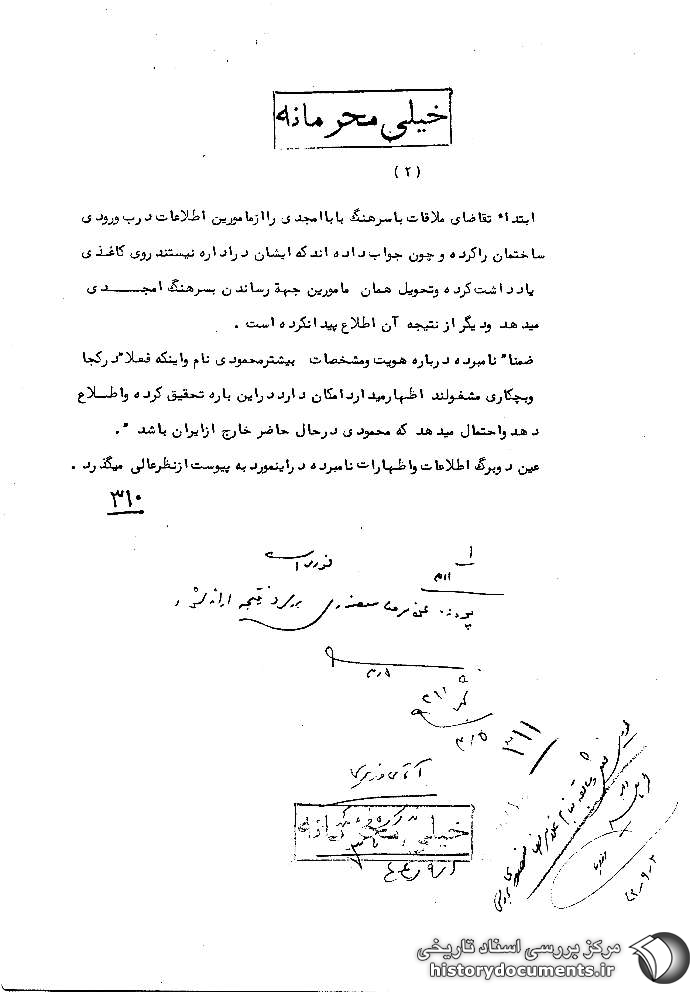 خیلی محرمانه
(۲)
ابتداء تقاضای ملاقات باسرهنگ بابا امجدی را ازمامورین اطلاعات درب ورودی
ساختمان راکرده و چون جواب داده اند که ایشان در اداره نیستند روی کاغذی
یادداشت کرده وتحویل همان مامورین جهة رساندن بسرهنگ امجــــدی
میدهد ودیگر از نتیجه آن اطلاع پیدا نکرده است .
ضمنا" نامبرده درباره هویت ومشخصات بیشترمحمودی نام واینکه فعلا" در کجا
وبچکاری مشغولند اظهارمیدارد امکان دارد در این باره تحقیق کرده واطــلاع
دهد واحتمال میدهد که محمودی درحال حاضر خارج ازایران باشد ".
عین دوبرگ اطلاعات واظهارات نامبرده دراینمورد به پیوست ازنظرعالی میگذرد .
۳۱۰
فوری است
۳۱۱
پرونده بررسی و نتیجه ارائه شود
۳/۵
۳۱۱
۳/۵
۳۱۱
خیلی محرمانه
مرکز بررسی اسناد تاریخی
historydocuments.ir